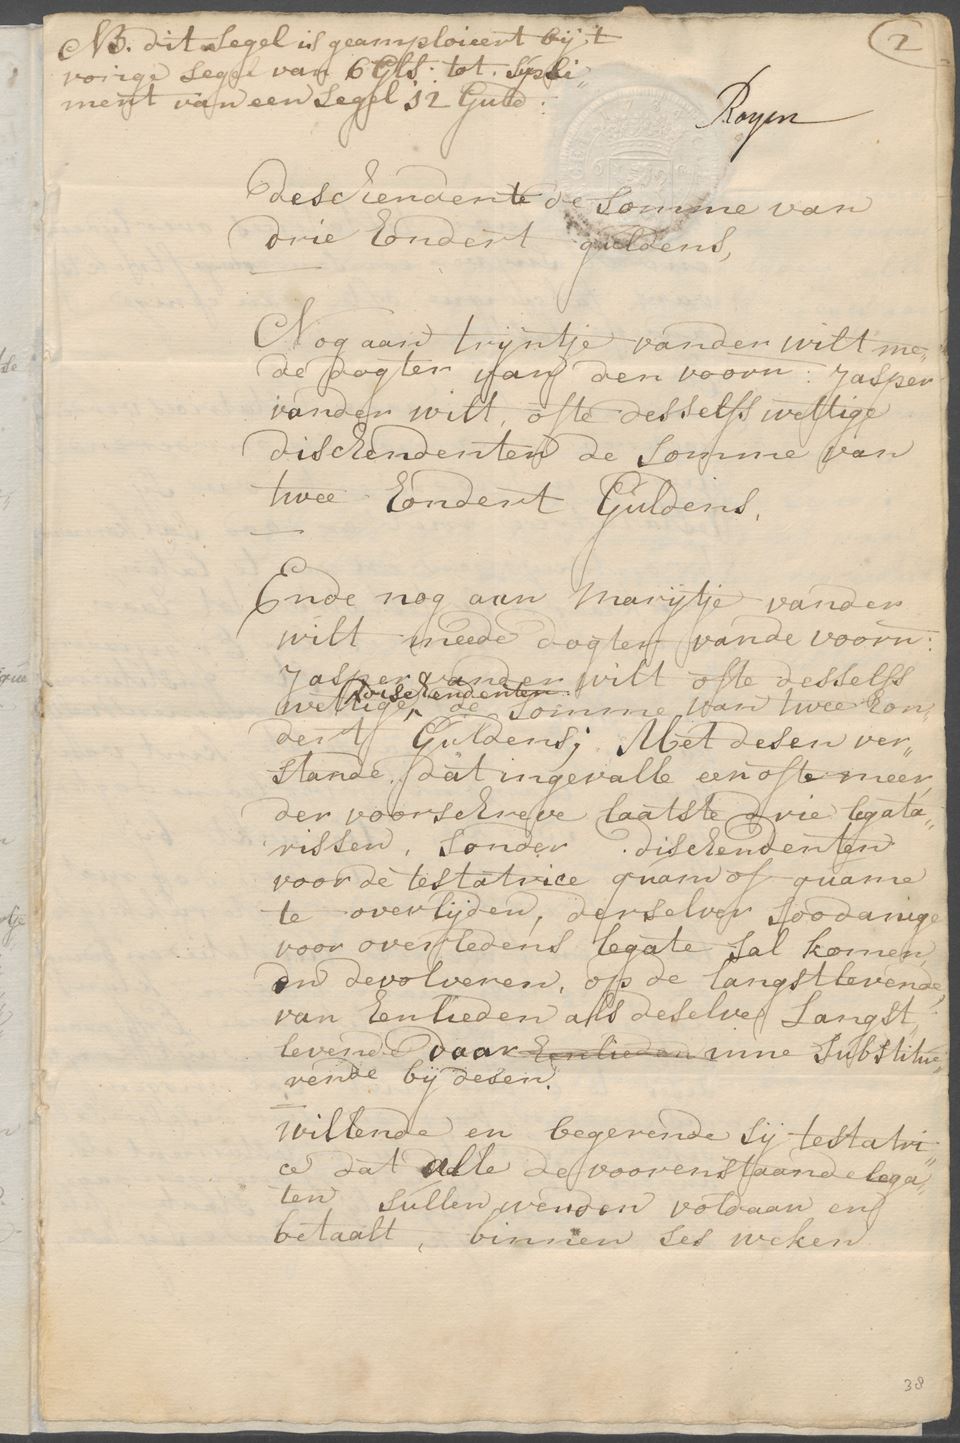 NB. dit Segel is geamploieert bij t
voirige Segel van 6 Gls: tot Suple
ment van een Segel 12 Guld:
2
Royen
deschendente de Somme van
drie hondert guldens,
Nog aan trijntje vander wilt me„
de dogter van den voorn: Jasper
vander wilt, ofte desselfs wettige
dischendenten de Somme van
twee hondert Guldens.
Ende nog aan Marijtje vander
wilt meede dogter vande voorn:
Jasper vander wilt ofte desselfs
dischendenten
wettige ^ de Somme van twee hon„
dert Guldens; Met desen ver„
stande, dat ingevalle een ofte meer
der voorschreve laatste drie legata„
rissen, Sonder dischendenten
voor de testatrice quam of quame
te overlijden, derselver Soodanige
voor overledens legate Sal komen
en devolveren, op de langstlevende
van henlieden als deselve Langst„
levende daar henlieden inne Substitue„
rende bij desen.
willende en begerende Sij testatri„
ce dat alle de voorenstaande lega„
ten Sullen werden voldaan en
betaalt, binnen Ses weken
38